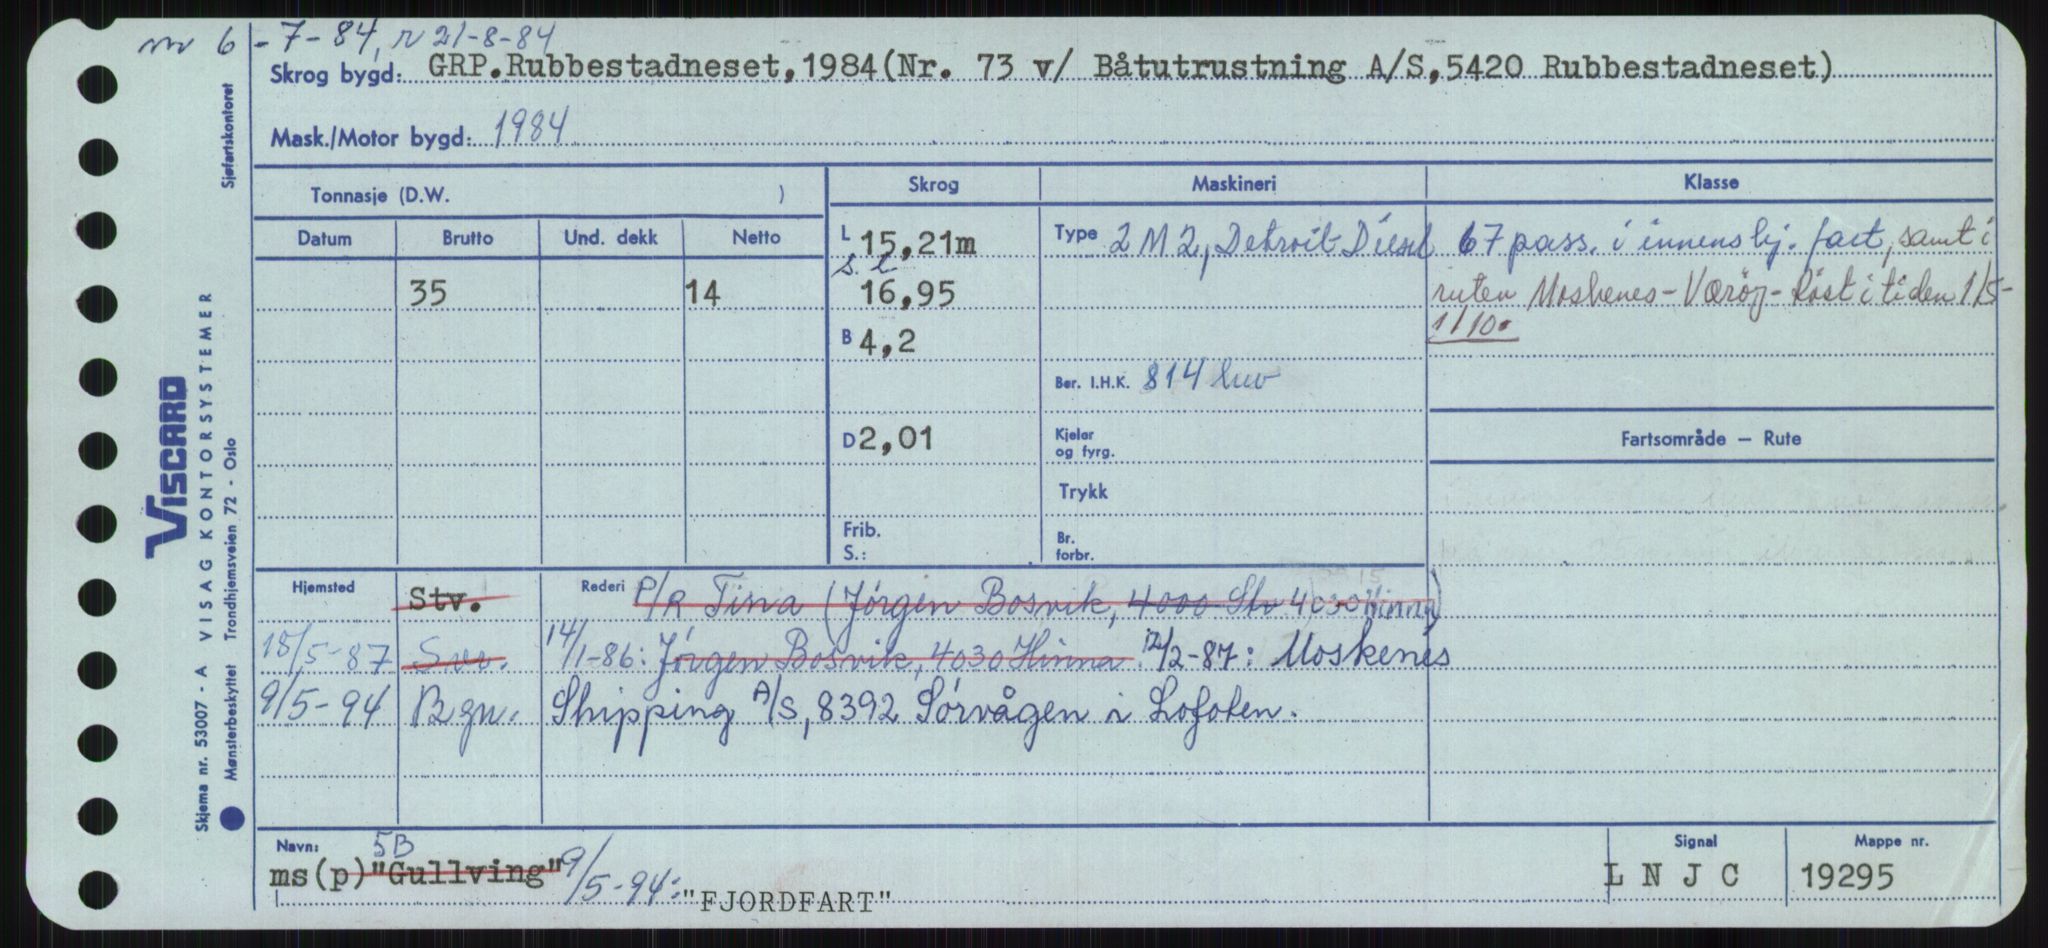 nv 6-7-84, r 21-8-84
Skrog bygd: GRP.Rubbestadneset,1984(Nr. 73 v/ Båtutrustning A/S,5420 Rubbestadneset)
Mask./Motor bygd: 1984
Tonnasje (D.W. ) Skrog Maskineri Klasse
Datum Brutto Und. dekk Netto L 15,21m Type 2 M 2, Detroit Diesel 67 pass. i innenskj. fart, samt i
35 14 s. l 16,95 ruten Moskenes-Værøy-Røst i tiden 1/5-
1/10.
B 4,2
Ber. I.H.K. 814 kw
D 2,01 Kjeler og fyrg. Fartsområde – Rute
Trykk
Frib. S.: Br. forbr.
Hjemsted Stv. Rederi P/R Tina (Jørgen Bosvik, 4000 Stv 4030 Hinna)
18/5-87 Svv. 14/1-86: Jørgen Bosvik, 4030 Hinna. 12/2-87: Moskenes
9/5-94 Bgn. Shipping A/S, 8392 Sørvågen i Lofoten.
Navn: 5B Signal Mappe nr.
ms(p)"Gullving" 9/5-94: "FJORDFART" L N J C 19295
Sjøfartskontoret
VISCARD
Skjema nr. 53007 - A VISAG KONTORSYSTEMER
Mønsterbeskyttet Trondhjemsveien 72 - Oslo